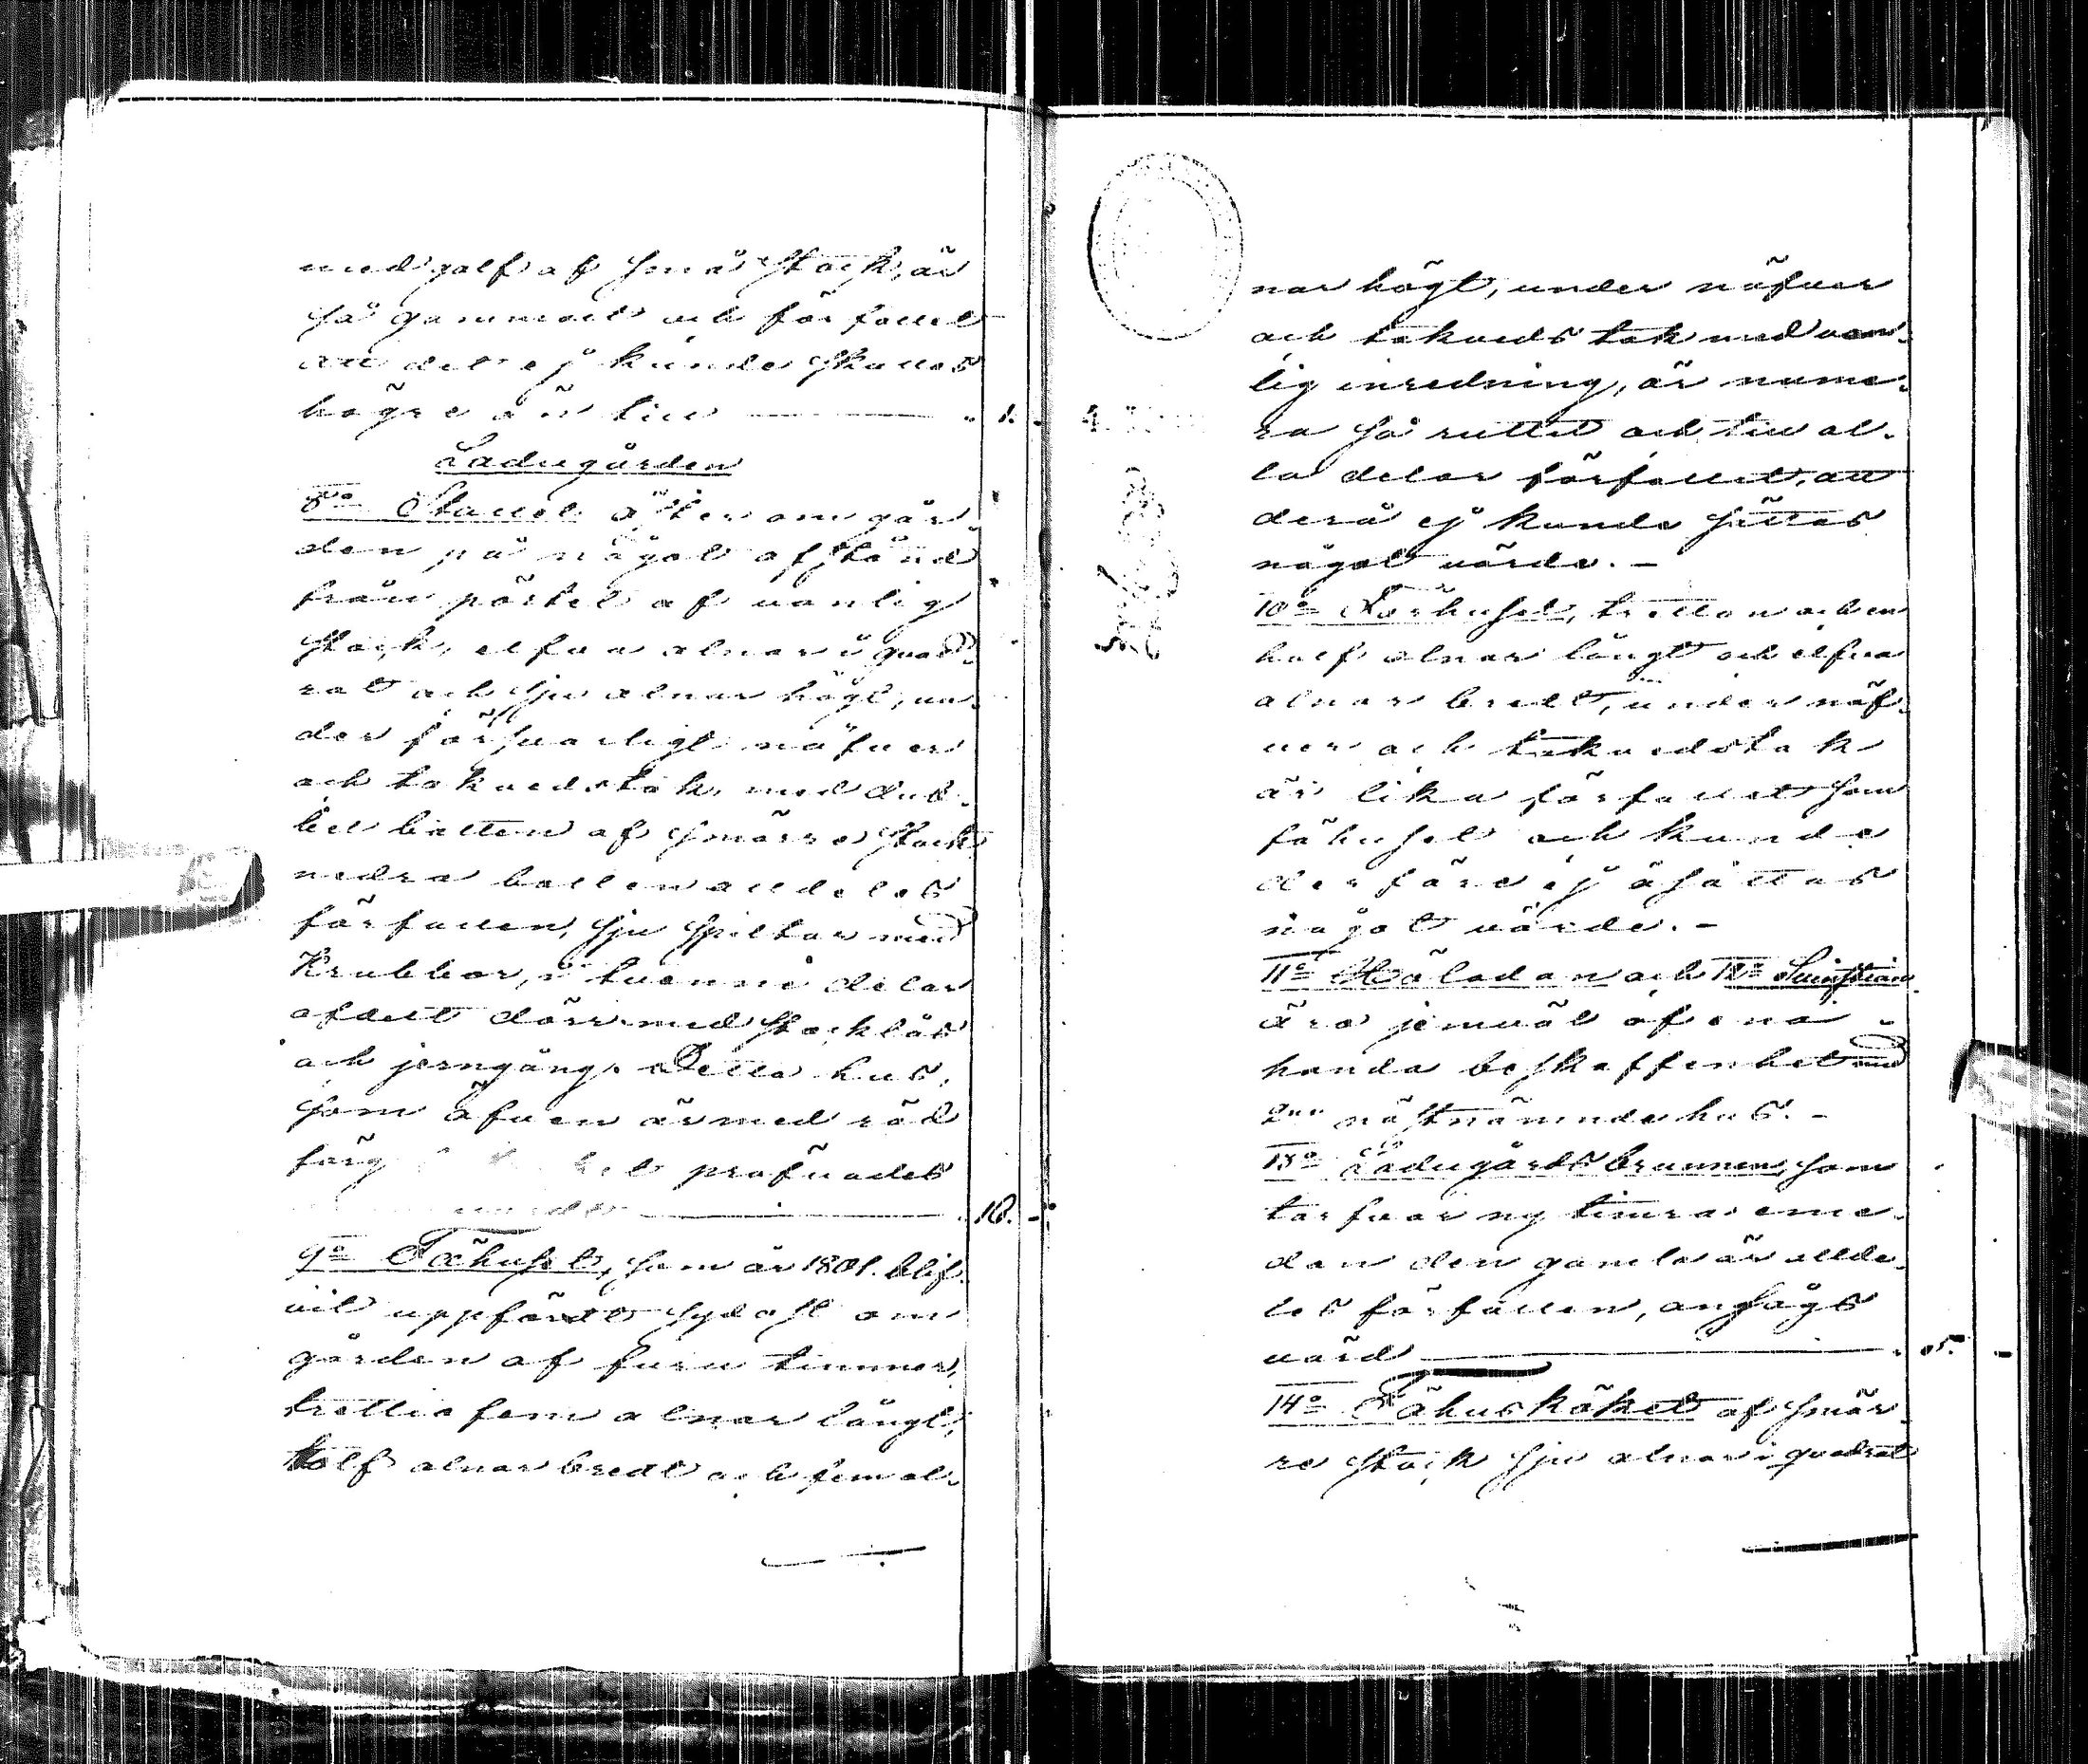 med golf af små stock, är
så gammalt och förfallet
att det ej kunde skattas
högre än till 1.
Ladugården
8o Stallet öster om går-
den på något afstånd
från pörtet af vanlig
stock, elfva alnar i quad-
rat och sju alnar högt, un-
der försvarligt näfver
och takvedstak, med dub-
bel batten af smärre stock
nedra botten alldeles
förfallen, sju spiltar med
Krubbor, i tvenne delar
afdelt dörr med stocklås
och jerngång. Detta hus,
som äfven är med röd
färg pröfvades
värdt 10.
9o Fähuset, som år 1801. blif-
vit uppfördt sydost om
gården af furu timmer,
trettio fem alnar långt,
tolf alnar bredt och fem al-
nar högt, under näfver
och takveds tak med van-
lig inredning, är nume-
ra så ruttet och till al-
la delar förfallet, att
derå ej kunde sättas
något värde. -
10o Farhuset, tretton och en
half alnar långt och elfva
alnar bredt, under näf-
ver och takvedstak
är lika förfallet som
fähuset och kunde
derföre ej åsättas
något värde. -
11o Höladan och 12o Svinstian
äro jemväl af ena-
handa beskaffenhet med
2ne nästnämnde hus. -
13o Ladugårdsbrunnen, som
tarfvar ny timra eme-
dan den gamla är allde-
les förfallen, ansågs
värd 5.
14o Fähusköket af smär-
re stock sju alnar i quadrat